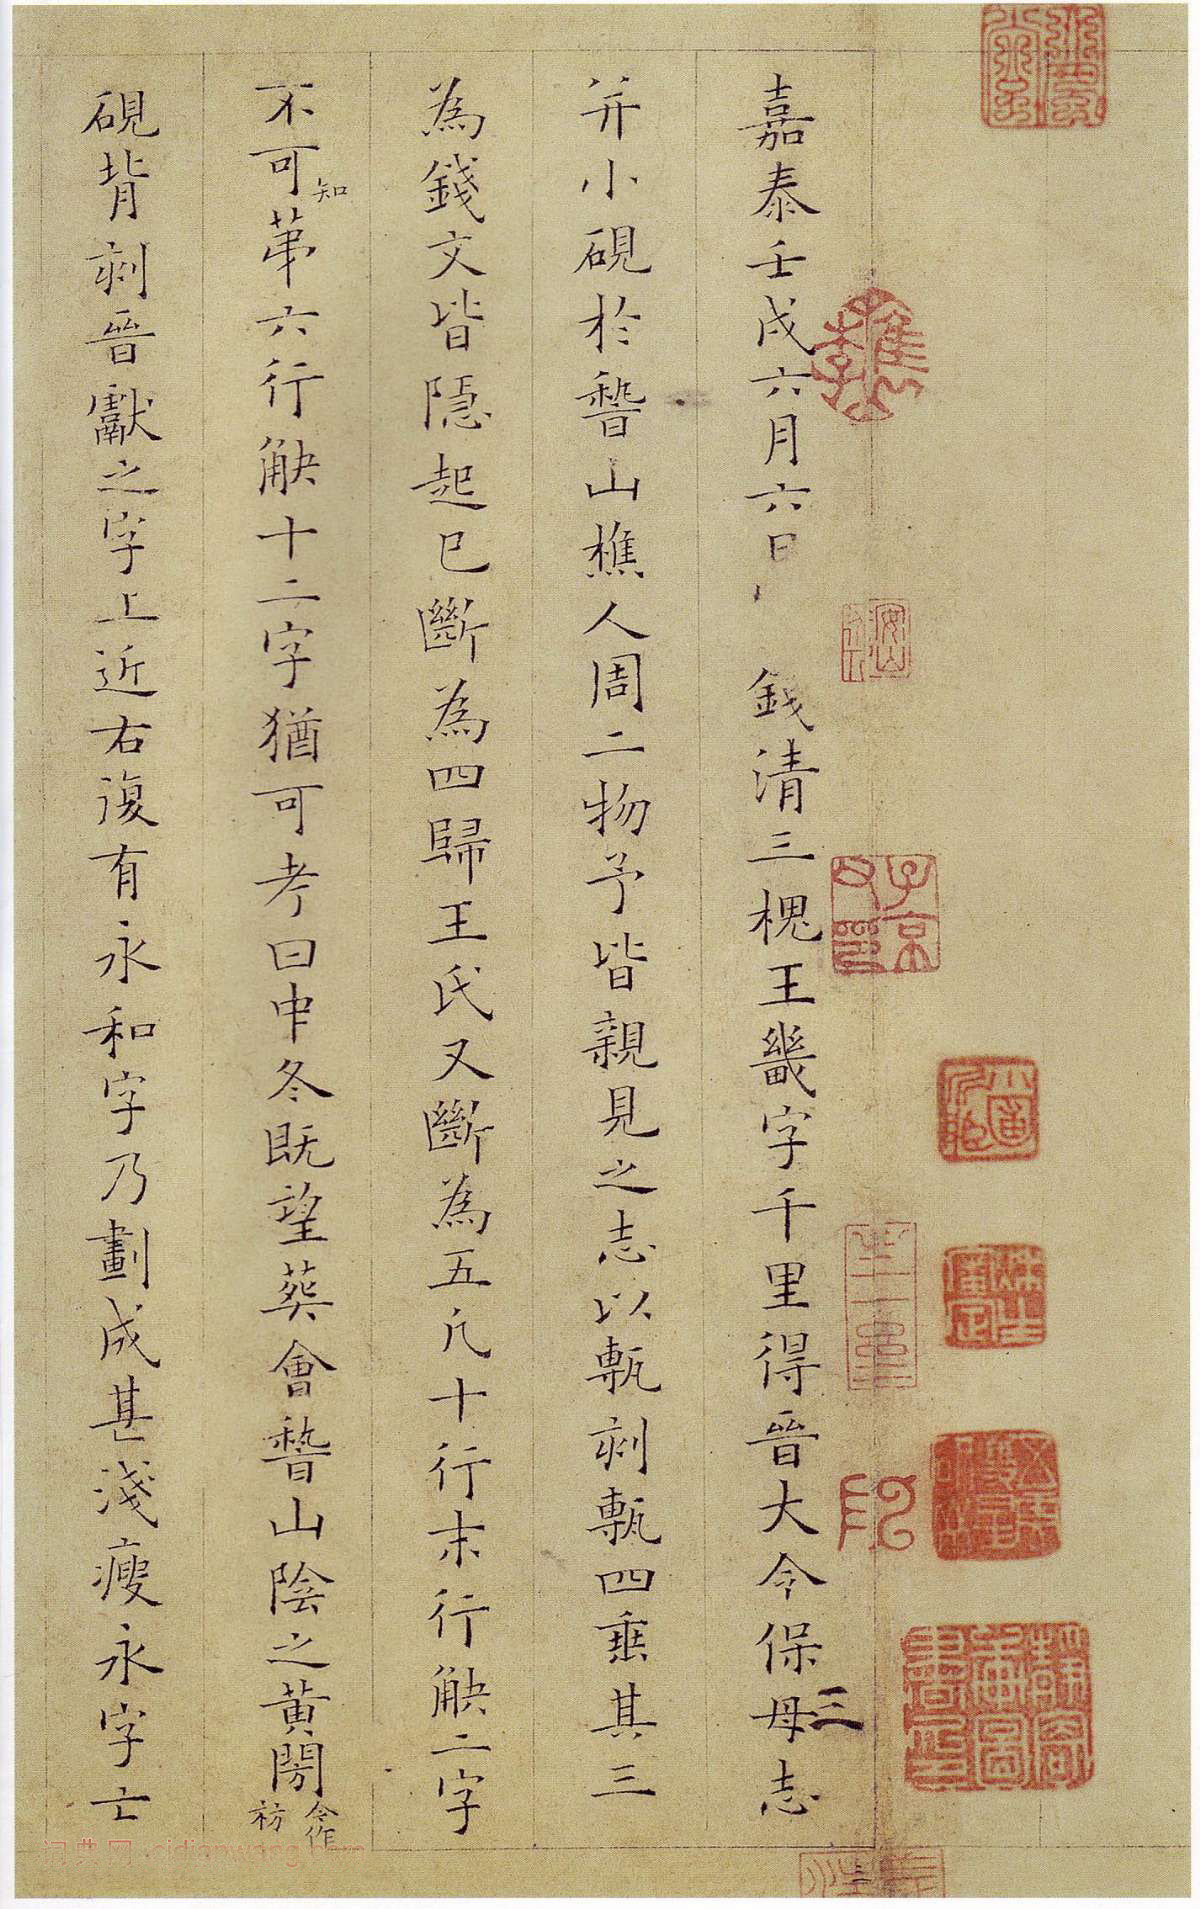 嘉泰壬戌六月六日錢清三槐王畿字千里得晉大令保母志
三
并小硯於稽山樵人周二物予皆親見之志以甎刻甎四垂其三
為錢文皆隱起已斷為四歸王氏又斷為五凡十行末行缺二字
不可知苐六行缺十二字猶可考曰中冬既望葬會稽山陰之黃閍今作祊
硯背刻晉獻之字上近右復有永和字乃劃成甚淺瘦永字亡
词典网 cidianwang.com